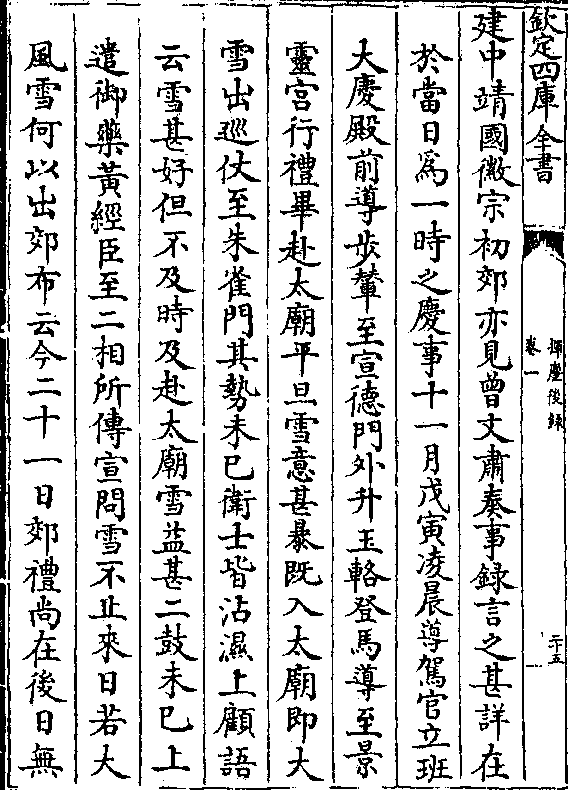 欽定四庫全書
揮麈後錄
卷一
二十五
建中靖國徽宗初郊亦見曾文肅奏事録言之甚詳在
於當日爲一時之慶事十一月戊寅凌晨導駕官立班
大慶殿前導步輦至宣德門外升玉輅登馬導至景
靈宫行禮畢赴太廟平旦雪意甚暴既入太廟即大
雪出廵仗至朱雀門其勢未已衛士皆沾濕上顧語
云雪甚好但不及時及赴太廟雪益甚二鼓未已上
遣御藥黃經臣至二相所傳宣問雪不止來日若大
風雪何以出郊布云今二十一日郊禮尚在後日無